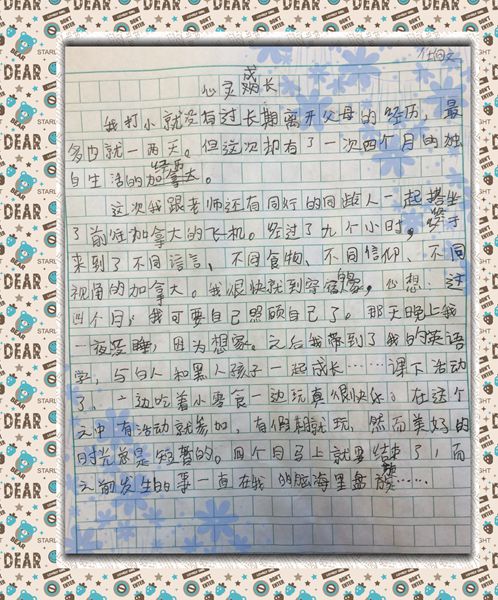 心灵成长
我打小就没有过长期离开父母的经历，最
多也就一两天。但这次却有了一次四个月的独
自生活的经历加拿大。
这次我跟老师还有同行的同龄人一起搭坐
了前往加拿大的飞机。经过了九个小时，终于
来到了不同语言、不同食物、不同信仰、不同
视角的加拿大。我很快就到寄宿家，心想：这
四个月，我可要自己照顾自己了。那天晚上我
一夜没睡，因为想家。之后我来到了我的英语
学，与白人和黑人孩子一起成长……课下活动
了，一边吃着小零食一边玩真很快乐。在这个
之中有活动就参加，有假期就玩，然而美好的
时光总是短暂的。四个月马上就要结束了，而
之前发生的事一直在我的脑海里盘旋……
DEAR
DON'T
ENTER
STARL